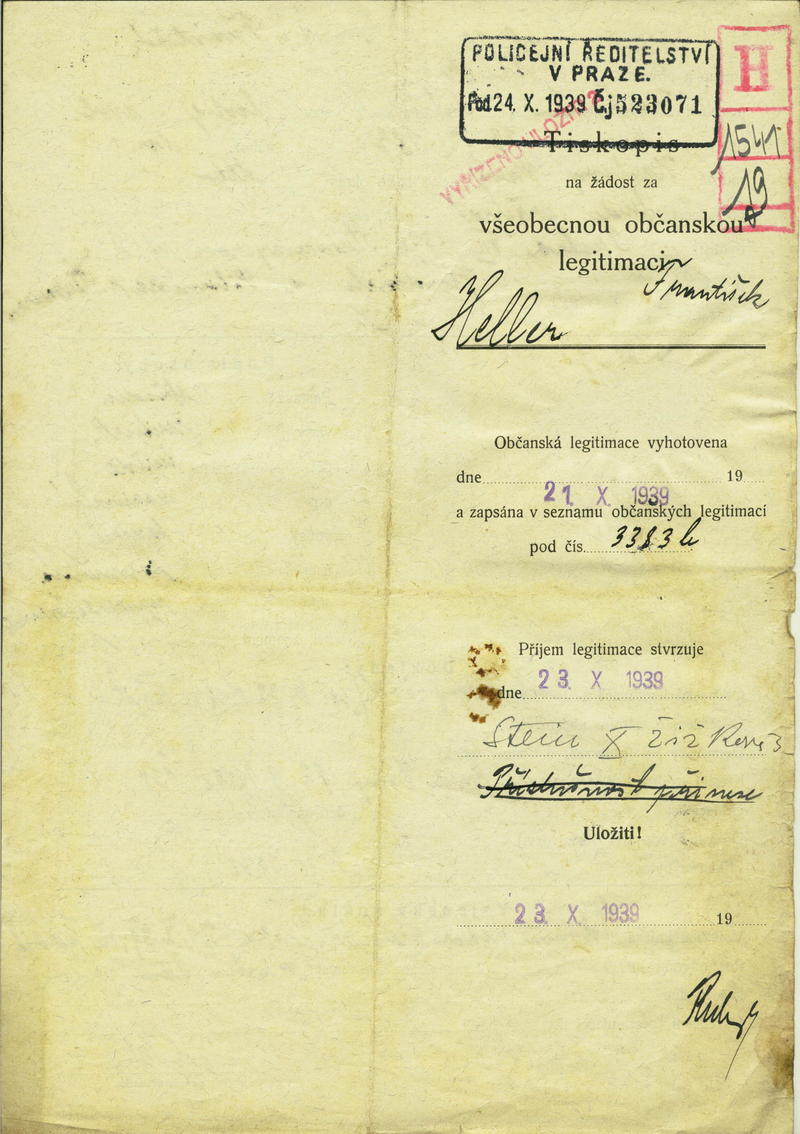 POLICEJNÍ ŘEDITELSTVÍ
V PRAZE.
Pod 24. X. 1939 Čj 523071
H
1541
19
VYŘÍZENO ULOŽIT
Tiskopis
na žádost za
všeobecnou občanskou
legitimaci
František
Heller
Občanská legitimace vyhotovena
dne 21 X 1939 19
a zapsána v seznamu občanských legitimací
pod čís. 3383 b
Příjem legitimace stvrzuje
dne 23 X 1939
Stein X Žižkov
Příslušnost přinese
Uložiti!
23 X 1939 19